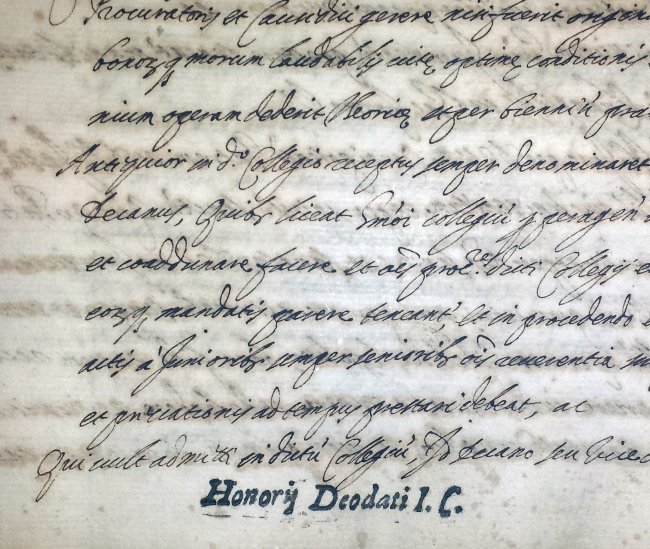 Procuratoris et Causidici gerere nisi fuerit origin
bonorumq morum laudabilis vitę optimę conditionis
nium operam dederit theoricę et per bienniũ pra
Antiquior in d.º Collegio receptus semper denominaret
Decanus, quibus liceat collegiũ peragen
et coaddunare facere et dicti Collegij e
eorumq mandatis parere teneant, et in procedendo
actis à Junioribus semper senioribus reverentia
et ad tempus prestari debeat, ac
Qui vult admitti in dictũ Collegiũ, à Decano seu Vice
Honorij Deodati I. C.